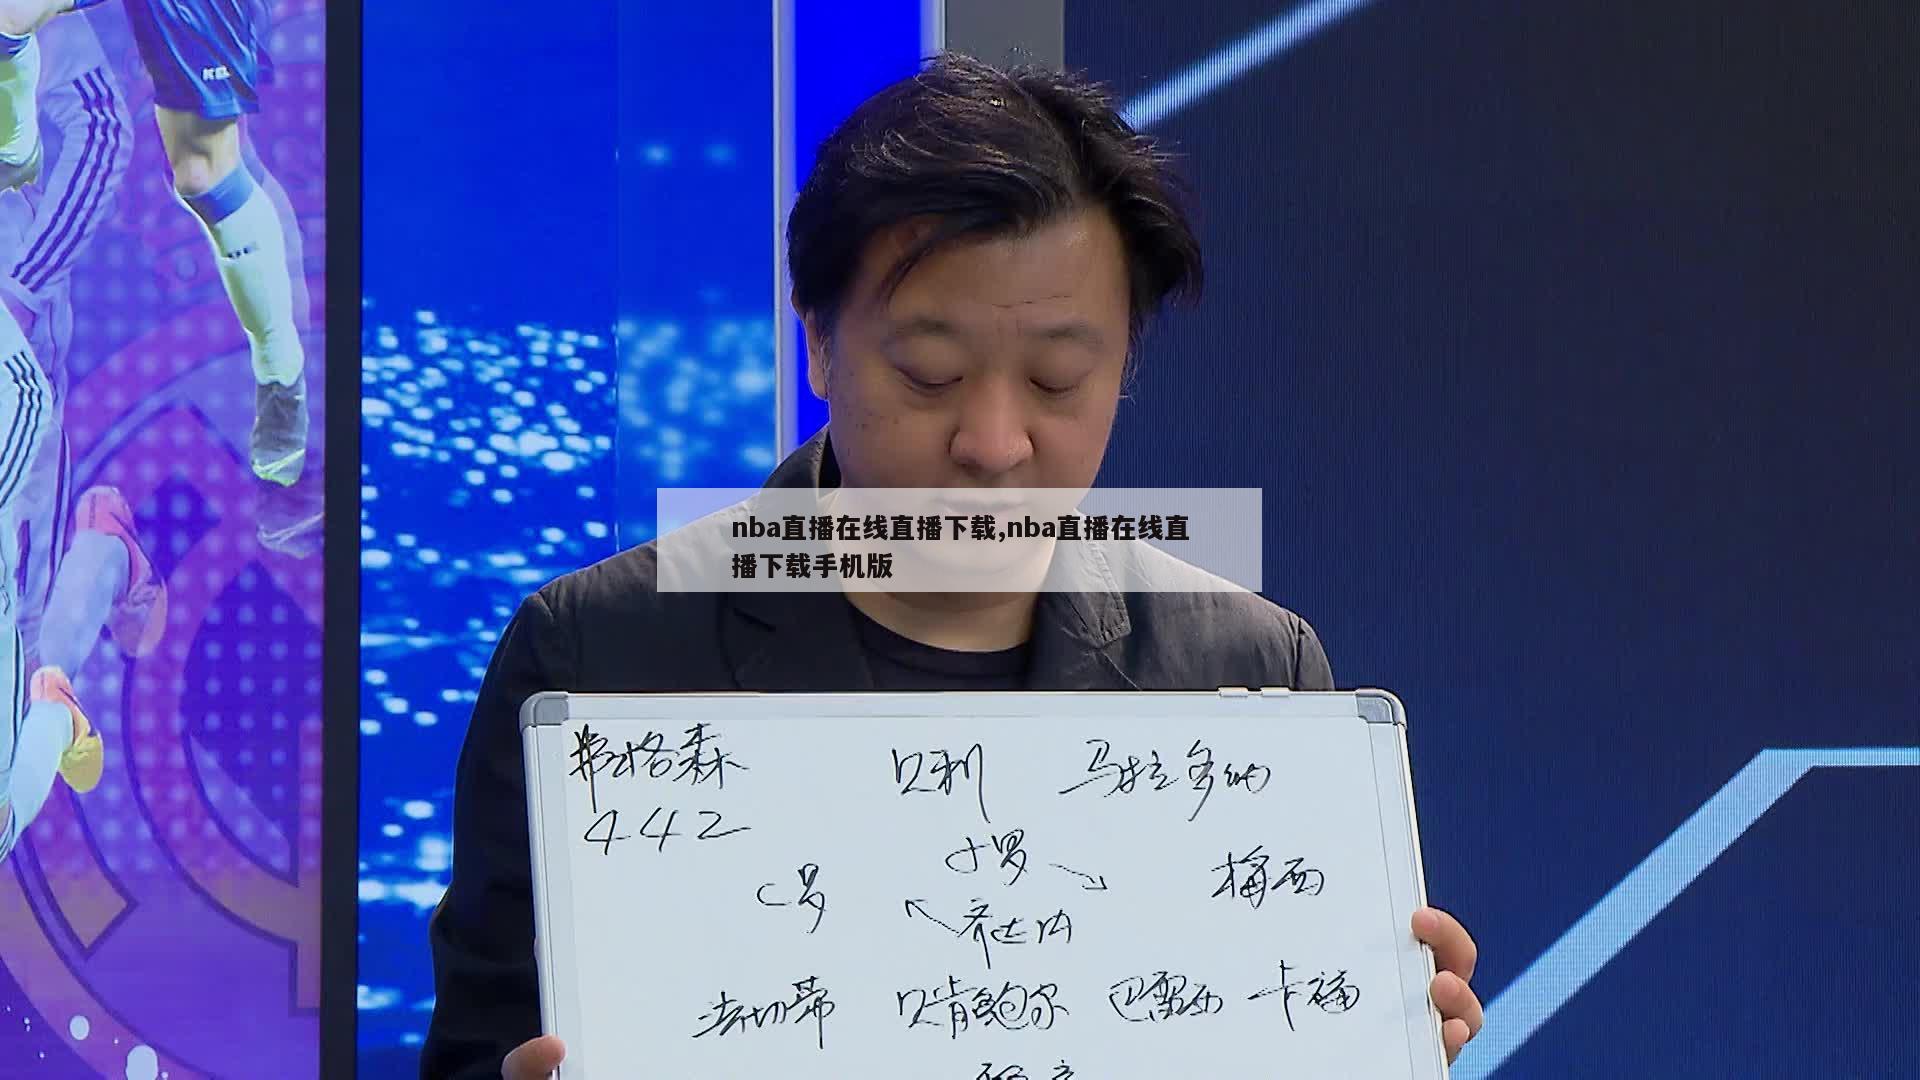 nba直播在线直播下载,nba直播在线直
播下载手机版
弗格森 贝利 马拉多纳
442
小罗
C罗 梅西
齐达内
法切蒂 贝肯鲍尔 巴雷西 卡福